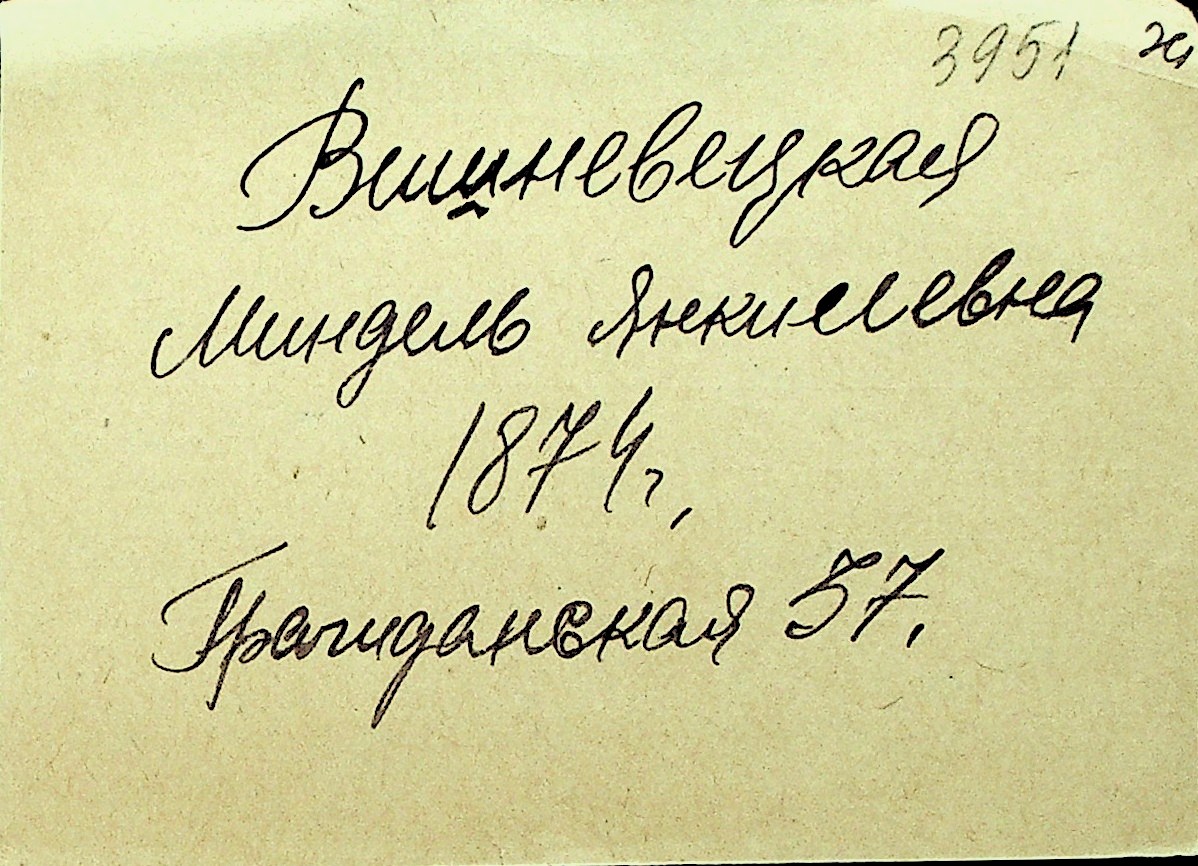 3951 ж
Вишневецкая
Миндель Янкилевна
1874г,
Гражданская 57.